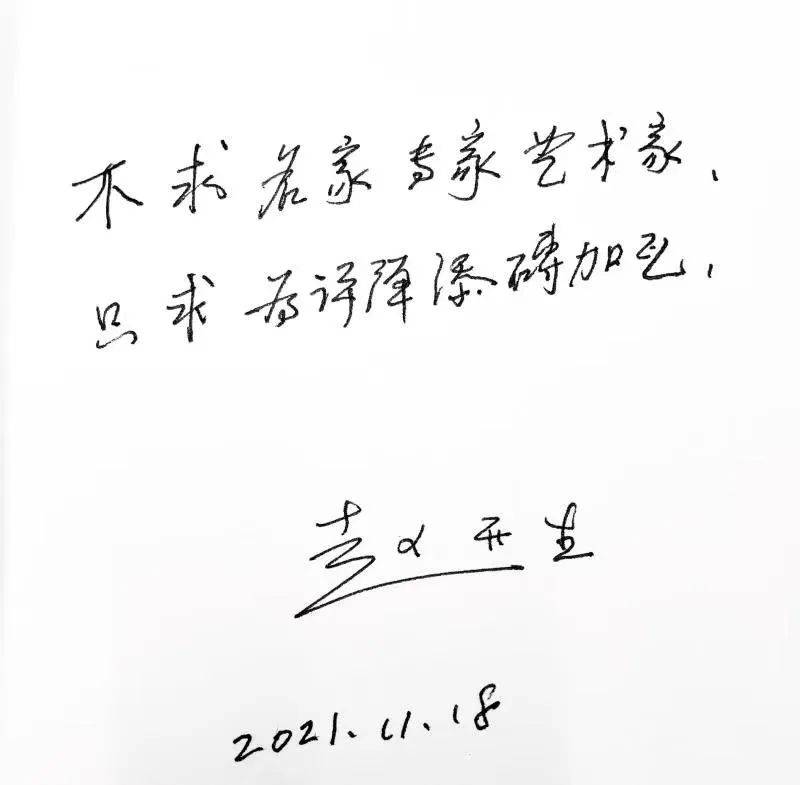 不求名家专家艺术家、
只求为评弹添砖加瓦，
赵开生
2021.11.18